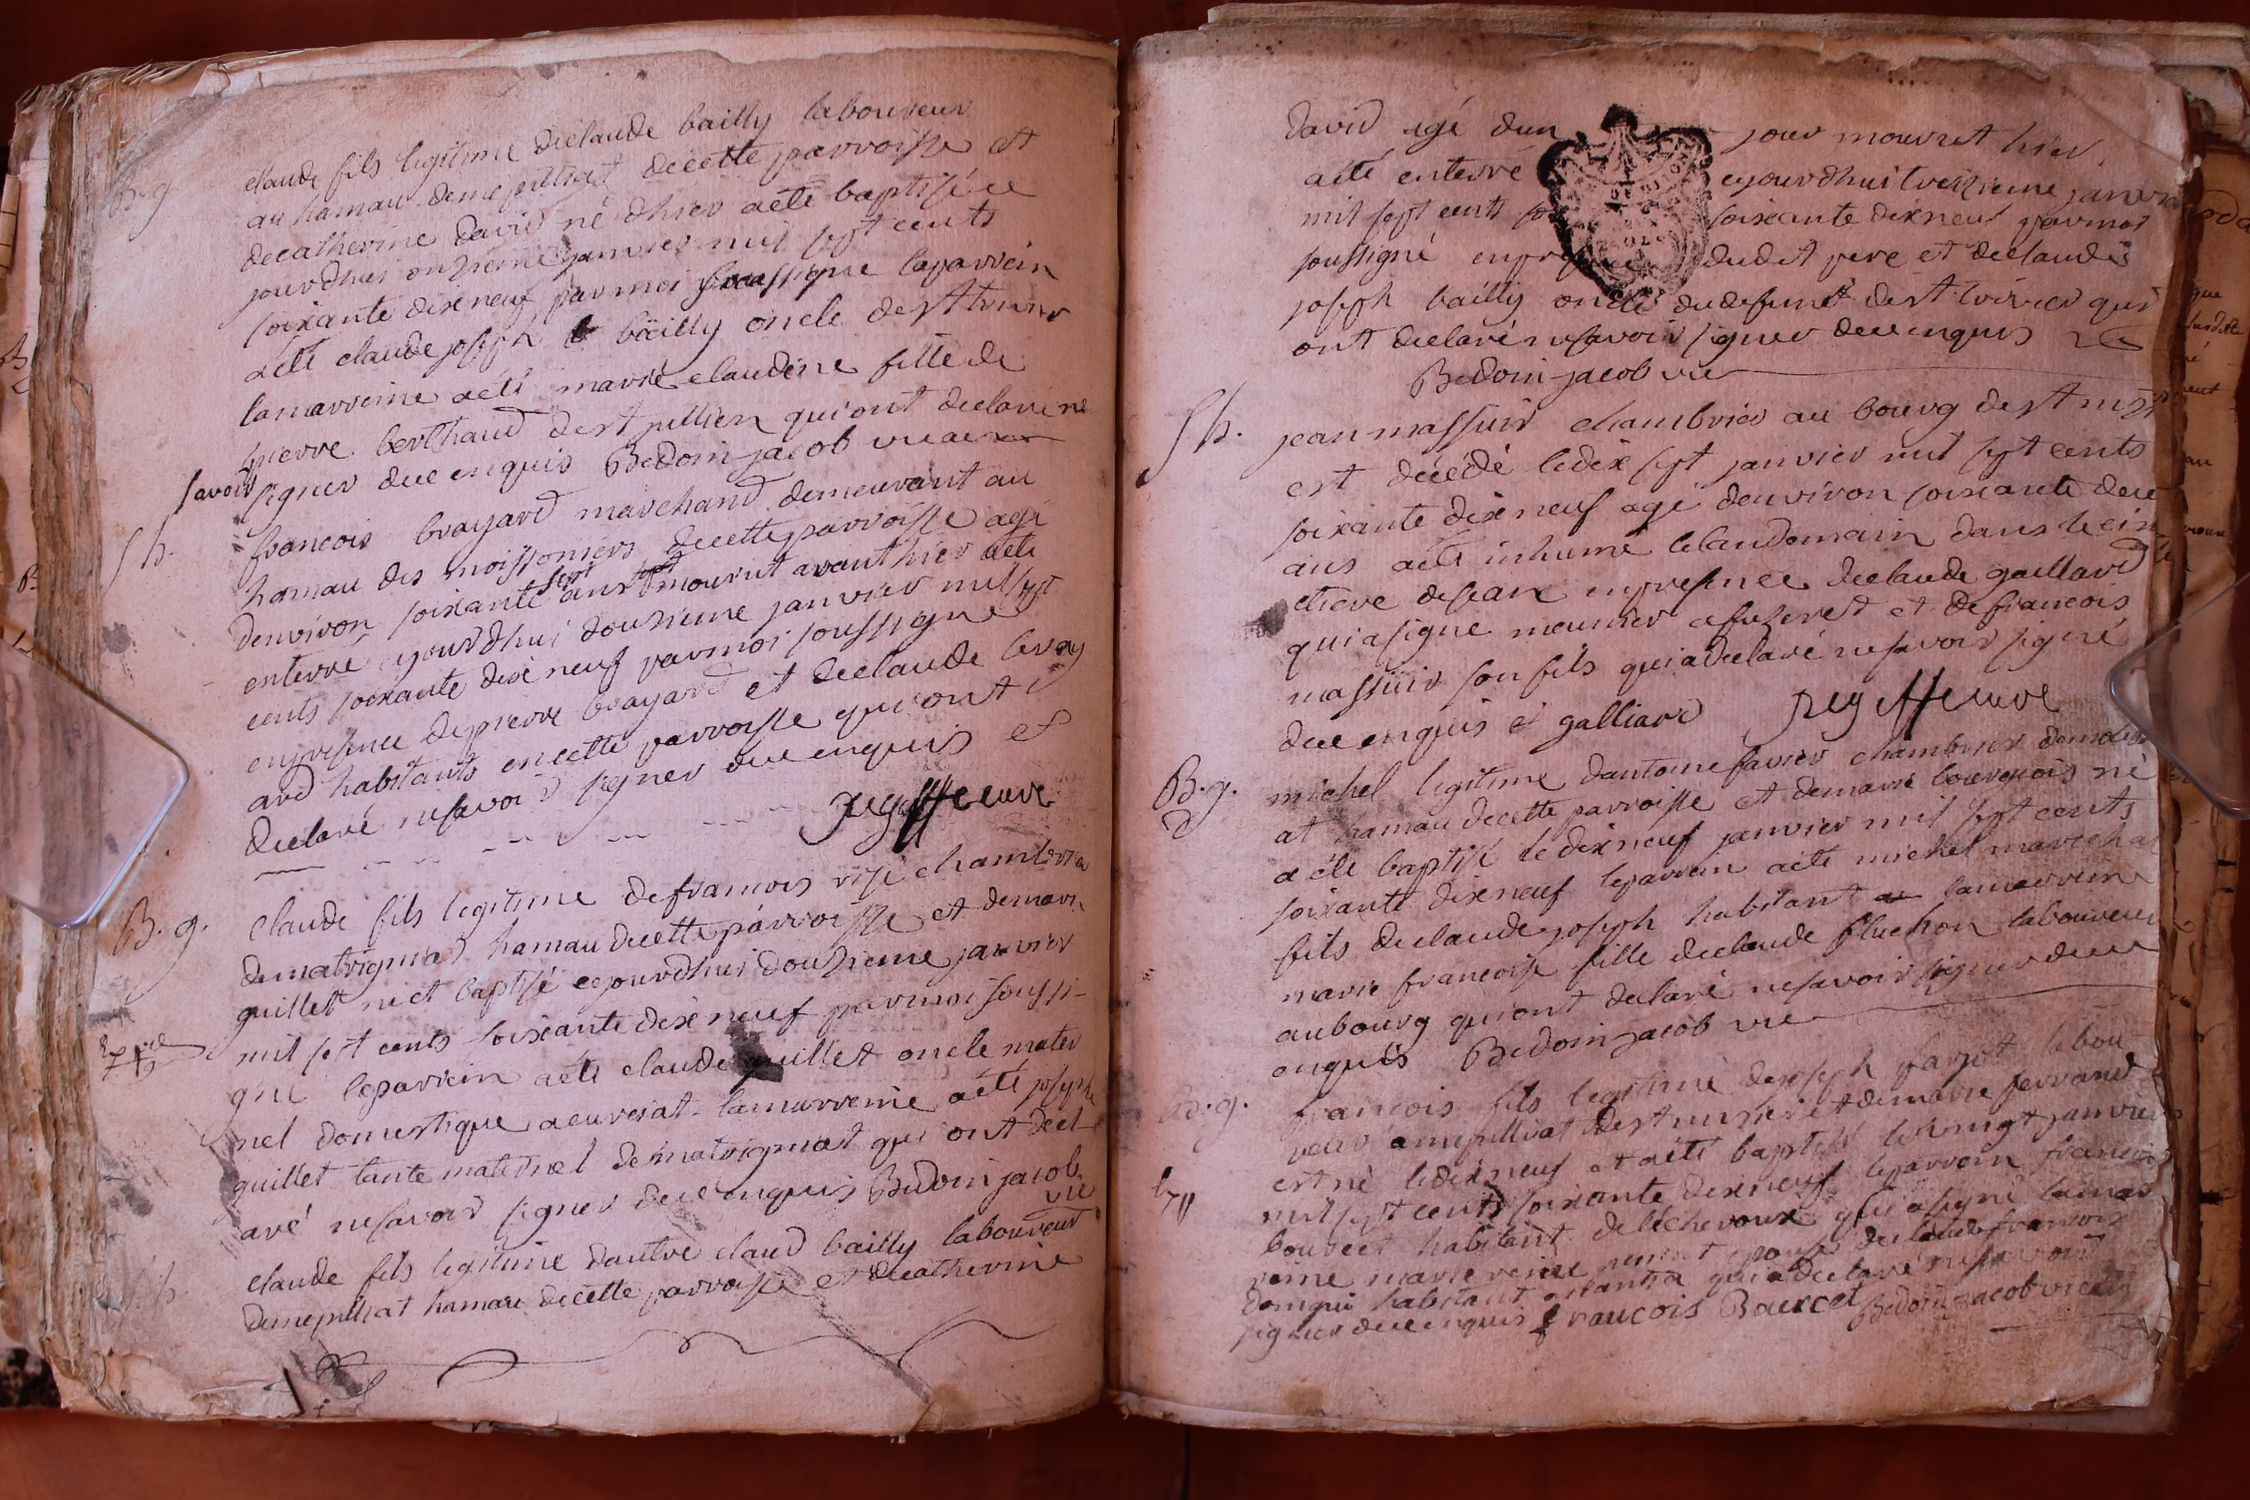 B. g.
claude fils legitime declaude bailly laboureur
au hamau de mepilliat decette parroisse et
decatherine david né dhier aété baptisé ce
jourdhui onzieme janvier mil sept cents
soixante dixneuf parmoi soussigné leparrein
aété claude joseph bailly oncle de st trivier
lamarreine aété marie claudine fille de
pierre berthaud de st jullien qui ont declaré ne
savoir signer dece enquis Bedoin jacob vicaire
S h.
francois brayard marchand demeurant au
hamau des moissoniers decette parroisse agé
denviron soixante sept ans mourut avanthier aété
enterré cejourdhui douzieme janvier mil sept
cents soixante dixe neuf parmoi soussigne
enpresence depierre brayard et declaude bray
ard habitants encette parroisse qui ont
declaré nesavoir signer dece enquis et
B. g.
claude fils legitime defrancois chambrier
dematrignat hamau decette parroisse et demarie
guillet né et baptisé cejourdhui douzieme janvier
mil sept cents soixante dixe neuf parmoi soussi-
gné leparrein aété claude guillet oncle mater
nel domestique acurciat lamarreine aété josephe
guillet tante maternel dematrignat qui ont decl
aré nesavoir signer dece enquis Bedoin jacob
vic
S. h.
claude fils legitime dautre claud bailly laboureur
demepilliat hamau decette parroisse et decatherine
david agé dun jour mourut hier
aété enterré cejourdhui treizieme janvier
mil sept cents soixante dixneuf parmoi
soussigné enpresence dudit pere et declaude
joseph bailly oncle dudefunt de st trivier qui
ont declaré nesavoir signer dece enquis
Bedoin jacob vic
S h.
jean massuir chambrier au bourg de st nizier
est décédé ledix sept janvier mil sept cents
soixante dixneuf agé denviron soixante deux
ans aété inhumé lelandemain dans lecim
etiere dejean enpresence declaude gaillard
qui a signe meunier et defrancois
massuir son fils qui adeclaré nesavoir signé
dece enquis C galliard
B. g.
michel legitime dantoine favier chambrier
at hamau decette parroisse et demarie bourgeois né
a été baptisé ledixneuf janvier mil sept cents
soixante dixneuf leparrein aété michel marechal
fils declaude joseph habitant lamarreine
marie francoise fille declaude pluchon laboureur
aubourg qui ont declaré nesavoir signer dece
enquis Bedoin jacob vic
B. g.
francois fils legitime dejoseph parjot labou
reur amepilliat de st nizier et demarie ferrand
est né ledixneuf et aété baptisé levingt janvier
mil sept cents soixante dixneuf leparrein francois
bourcet habitant delecheroux qui a signé lamar
reine marie reine epouse declaude francois
donguin habitant qui adeclaré nesavoir
signer dece enquis francois Bourcet Bedoin jacob vicaire